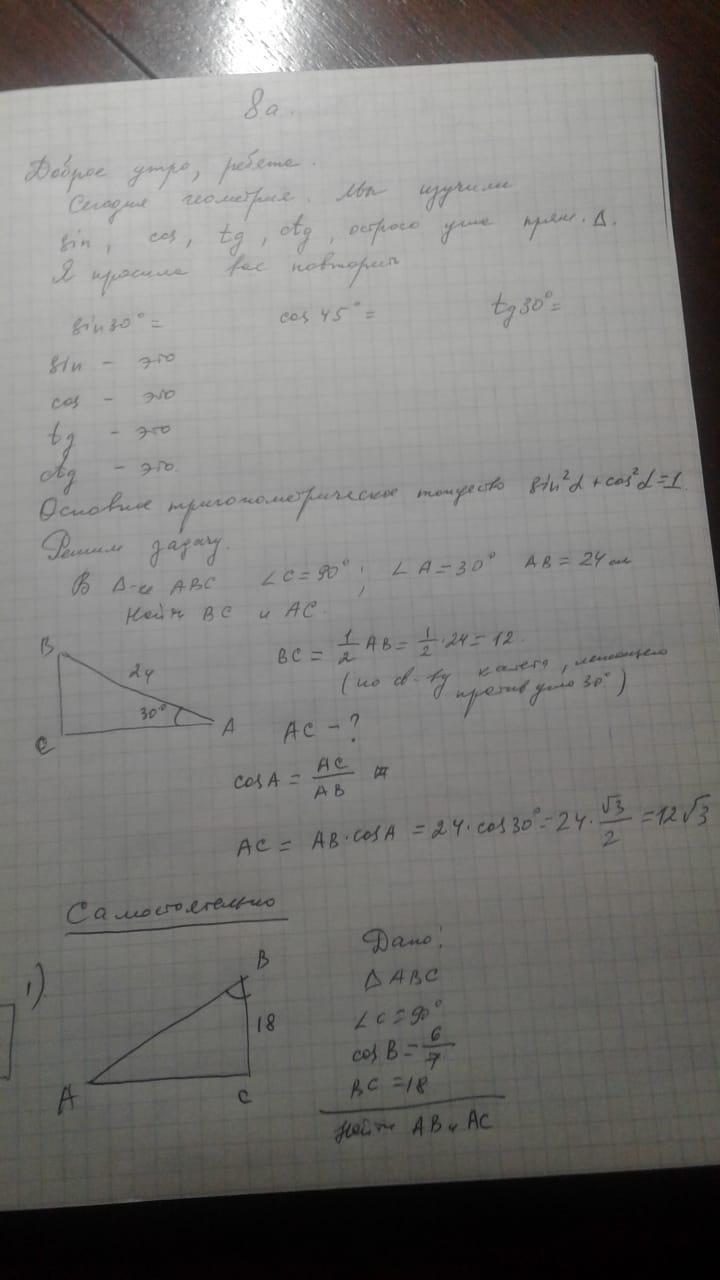 8а.
Доброе утро, ребята.
Сегодня геометрия. Мы изучили
sin, cos, tg, ctg, острого угла прям. Δ.
Я просила вас повторить
sin30°= cos45°= tg30°=
sin - это
cos - это
tg - это
ctg - это.
Основное тригонометрическое тождество sin²α+cos²α=1.
Решим задачу.
В Δ-ке ABC ∠C=90°; ∠A=30° AB=24см
Найти BC и AC.
B
24
30°
A
C
BC = 1/2 AB = 1/2·24=12.
(по св-ву катета, лежащего
против угла 30°)
AC - ?
cosA = AC/AB
AC = AB·cosA = 24·cos30°=24·√3/2=12√3
Самостоятельно
1)
B
18
A
C
Дано:
Δ ABC
∠C=90°
cosB=6/7
BC=18
Найти AB и AC